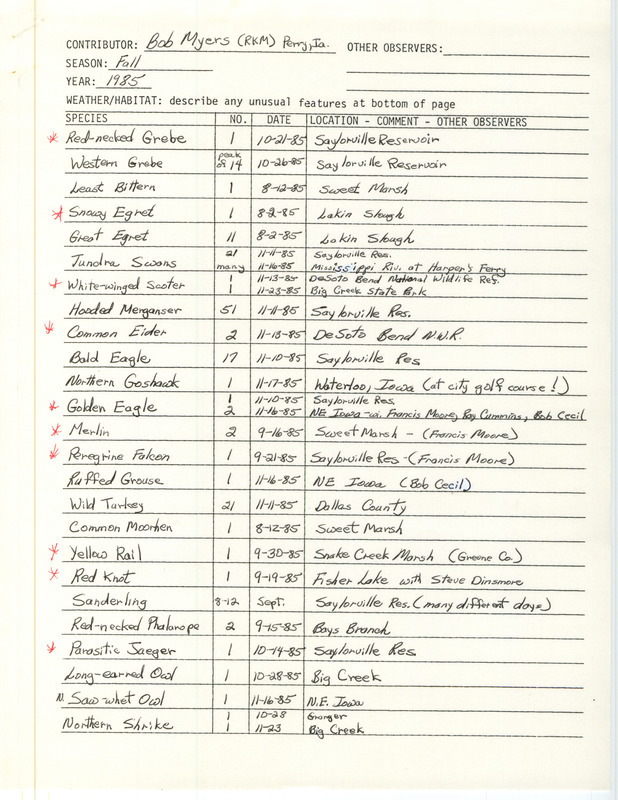 CONTRIBUTOR: Bob Myers (RKM) Perry, Ia. OTHER OBSERVERS:
SEASON: Fall
YEAR: 1985
WEATHER/HABITAT: describe any unusual features at bottom of page
SPECIES NO. DATE LOCATION - COMMENT - OTHER OBSERVERS
* Red-necked Grebe 1 10-21-85 Saylorville Reservoir
Western Grebe peak of 14 10-26-85 Saylorville Reservoir
Least Bittern 1 8-12-85 Sweet Marsh
* Snowy Egret 1 8-2-85 Lakin Slough
Great Egret 11 8-2-85 Lakin Slough
Tundra Swans 21 11-11-85 Saylorville Res.
many 11-16-85 Mississippi Riv. at Harper's Ferry
* White-winged Scoter 1 11-13-85 DeSoto Bend National Wildlife Ref.
1 11-23-85 Big Creek State Park
Hooded Merganser 51 11-11-85 Saylorville Res.
* Common Eider 2 11-13-85 DeSoto Bend N.W.R.
Bald Eagle 17 11-10-85 Saylorville Res
Northern Goshawk 1 11-17-85 Waterloo, Iowa (at city golf course!)
* Golden Eagle 1 11-10-85 Saylorville Res.
2 11-16-85 NE Iowa - w. Francis Moore, Ray Cummins, Bob Cecil
* Merlin 2 9-16-85 Sweet Marsh - (Francis Moore)
* Peregrine Falcon 1 9-21-85 Saylorville Res - (Francis Moore)
Ruffed Grouse 1 11-16-85 NE Iowa (Bob Cecil)
Wild Turkey 21 11-11-85 Dallas County
Common Moorhen 1 8-12-85 Sweet Marsh
* Yellow Rail 1 9-30-85 Snake Creek Marsh (Greene Co.)
* Red Knot 1 9-19-85 Fisher Lake with Steve Dinsmore
Sanderling 8-12 Sept. Saylorville Res. (many different days)
Red-necked Phalarope 2 9-15-85 Bays Branch
* Parasitic Jaeger 1 10-14-85 Saylorville Res
Long-earred Owl 1 10-28-85 Big Creek
N. Saw-whet Owl 1 11-16-85 N.E. Iowa
Northern Shrike 1 10-28 Granger
1 11-23 Big Creek